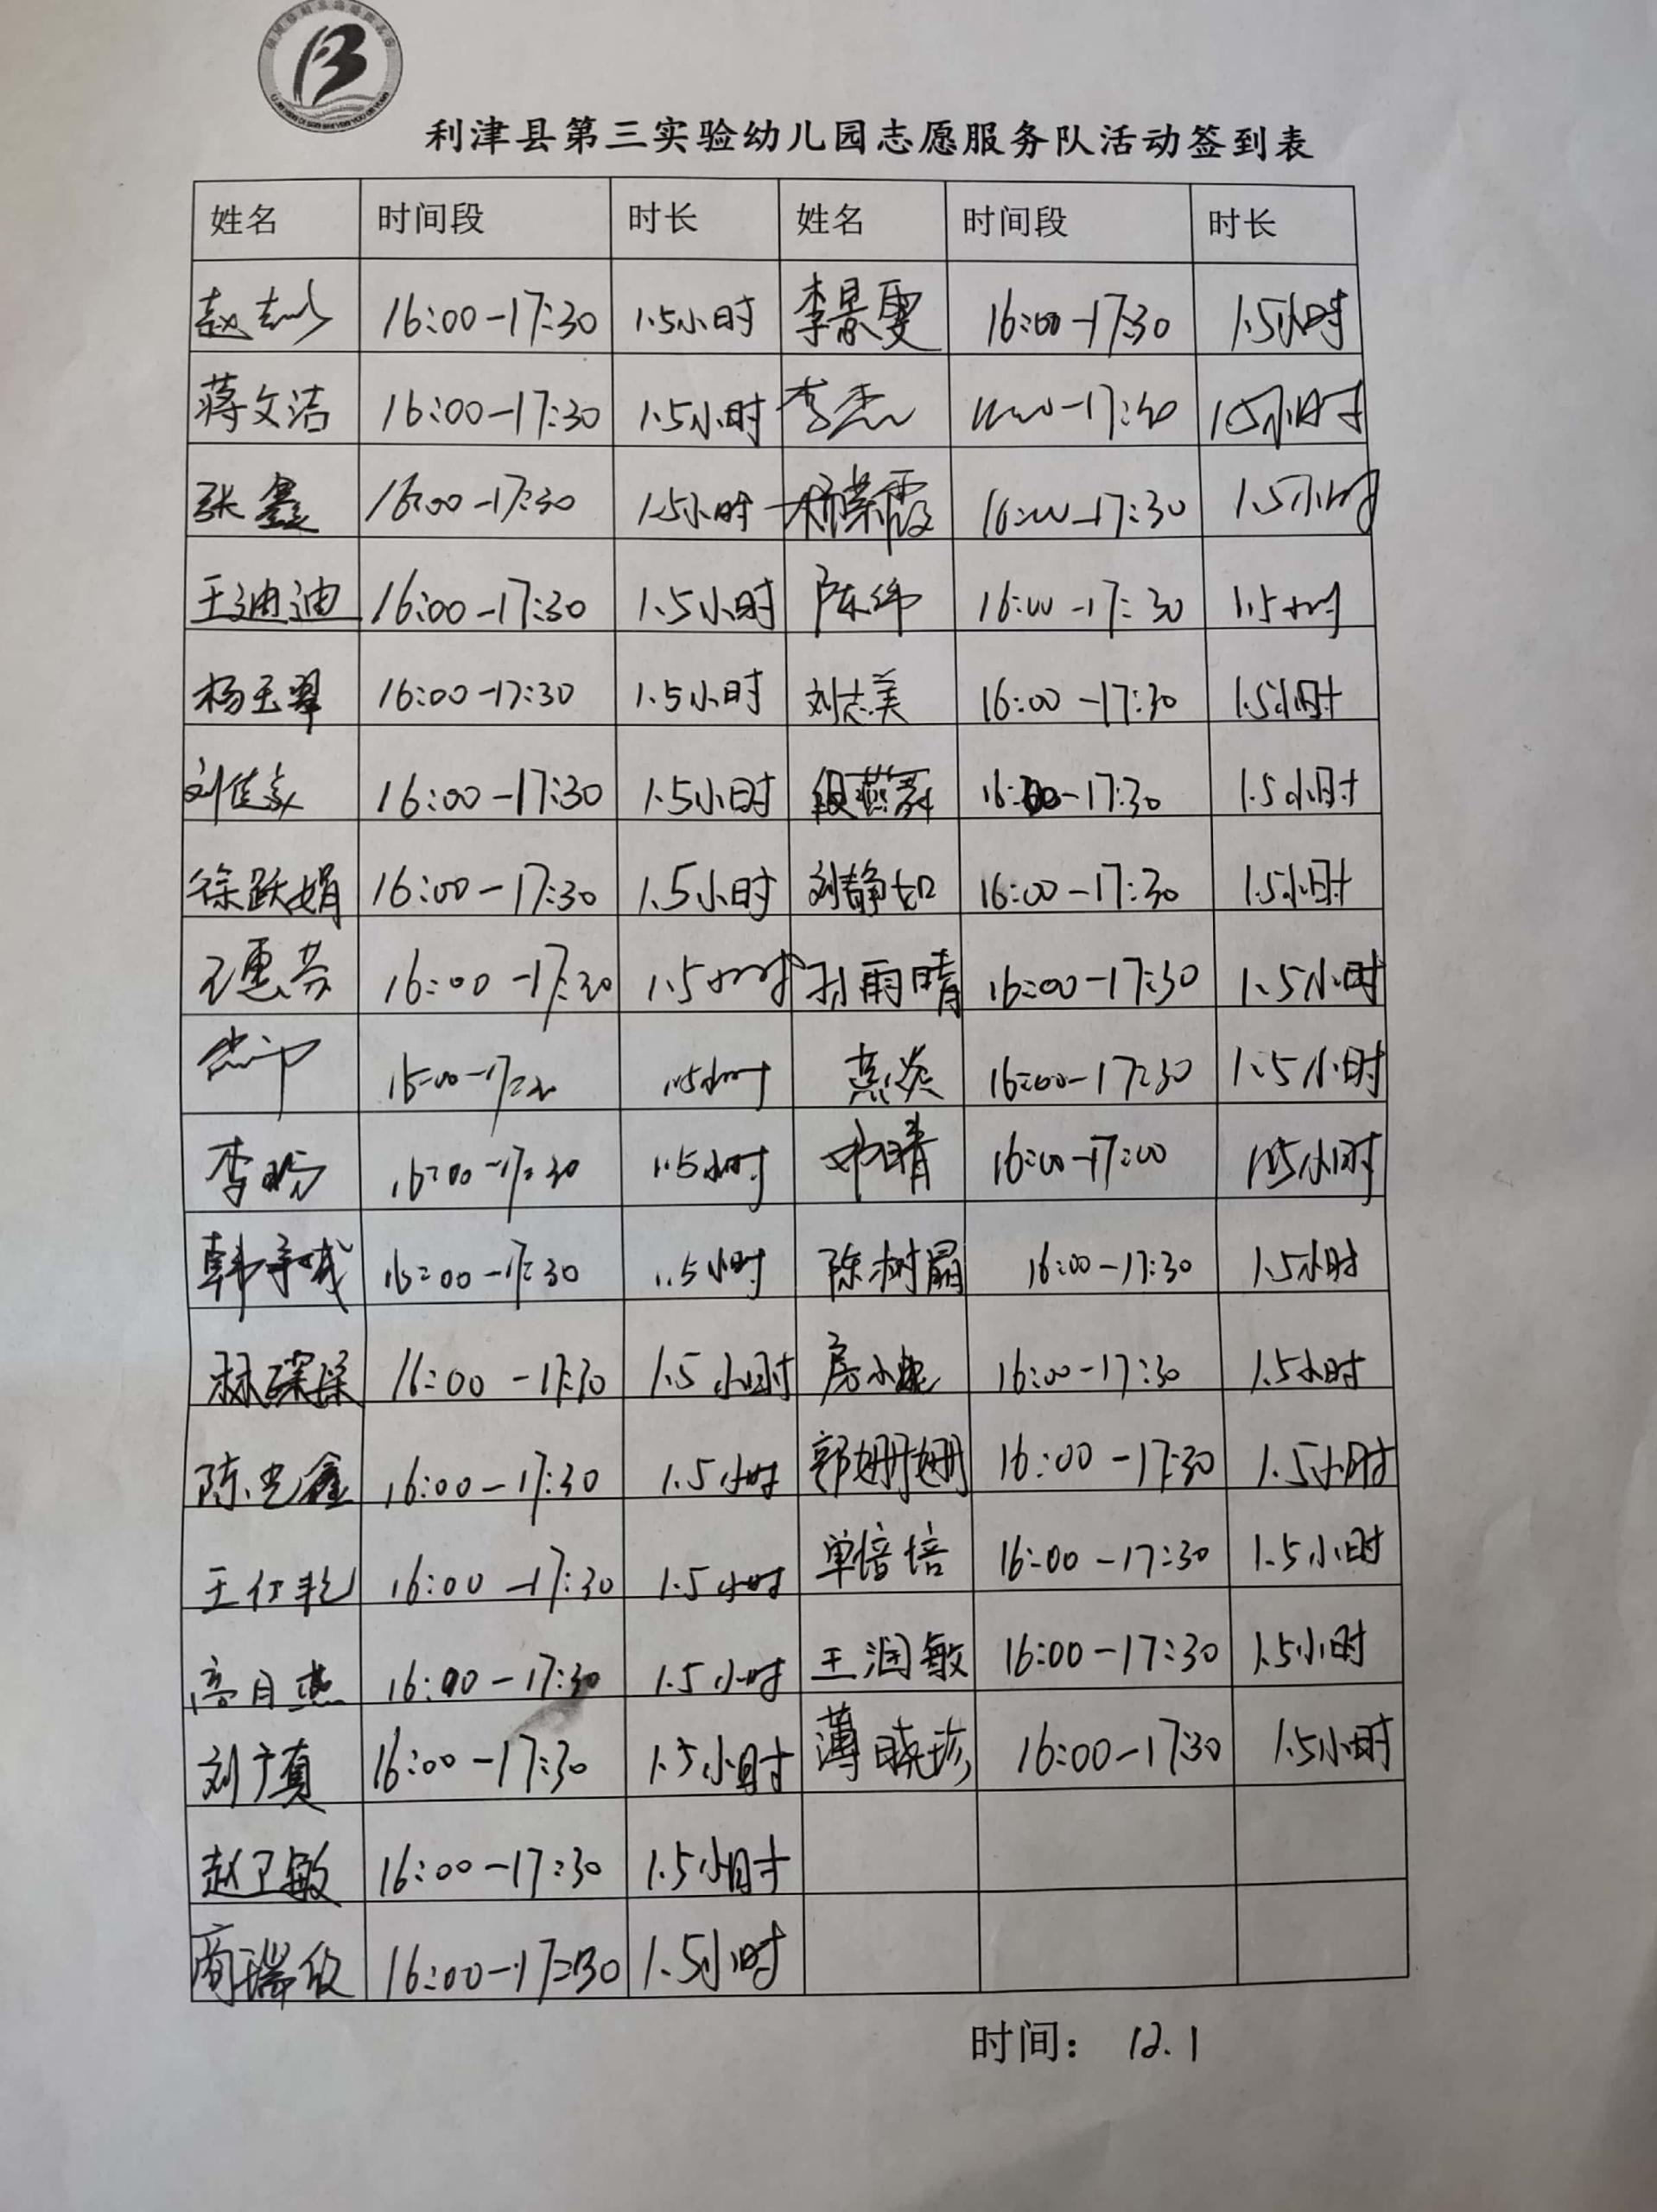 利津县第三实验幼儿园志愿服务队活动签到表
姓名 时间段 时长 姓名 时间段 时长
16:00-17:30 1.5小时 李景雯 16:00-17:30 1.5小时
蒋文洁 16:00-17:30 1.5小时 李杰 1.5小时
张鑫 16:00-17:30 1.5小时 杨荣霞 16:00-17:30 1.5小时
王迪迪 16:00-17:30 1.5小时 陈伟 16:00-17:30 1.5小时
杨玉翠 16:00-17:30 1.5小时 刘志美 16:00-17:30 1.5小时
刘佳 16:00-17:30 1.5小时 段燕 16:00-17:30 1.5小时
徐跃娟 16:00-17:30 1.5小时 刘静如 16:00-17:30 1.5小时
王惠芬 16:00-17:30 1.5小时 孙雨晴 16:00-17:30 1.5小时
1.5小时 燕炎 16:00-17:30 1.5小时
李 16:00-17:30 1.5小时 晴 16:00-17:00 1.5小时
韩 16:00-17:30 1.5小时 陈树晶 16:00-17:30 1.5小时
林琛琛 16:00-17:30 1.5小时 房小 16:00-17:30 1.5小时
陈光鑫 16:00-17:30 1.5小时 郭姗姗 16:00-17:30 1.5小时
王红艳 16:00-17:30 1.5小时 单培培 16:00-17:30 1.5小时
高月燕 16:00-17:30 1.5小时 王润敏 16:00-17:30 1.5小时
刘广真 16:00-17:30 1.5小时 薄晓珍 16:00-17:30 1.5小时
赵卫敏 16:00-17:30 1.5小时
商瑞 16:00-17:30 1.5小时
时间： 12.1